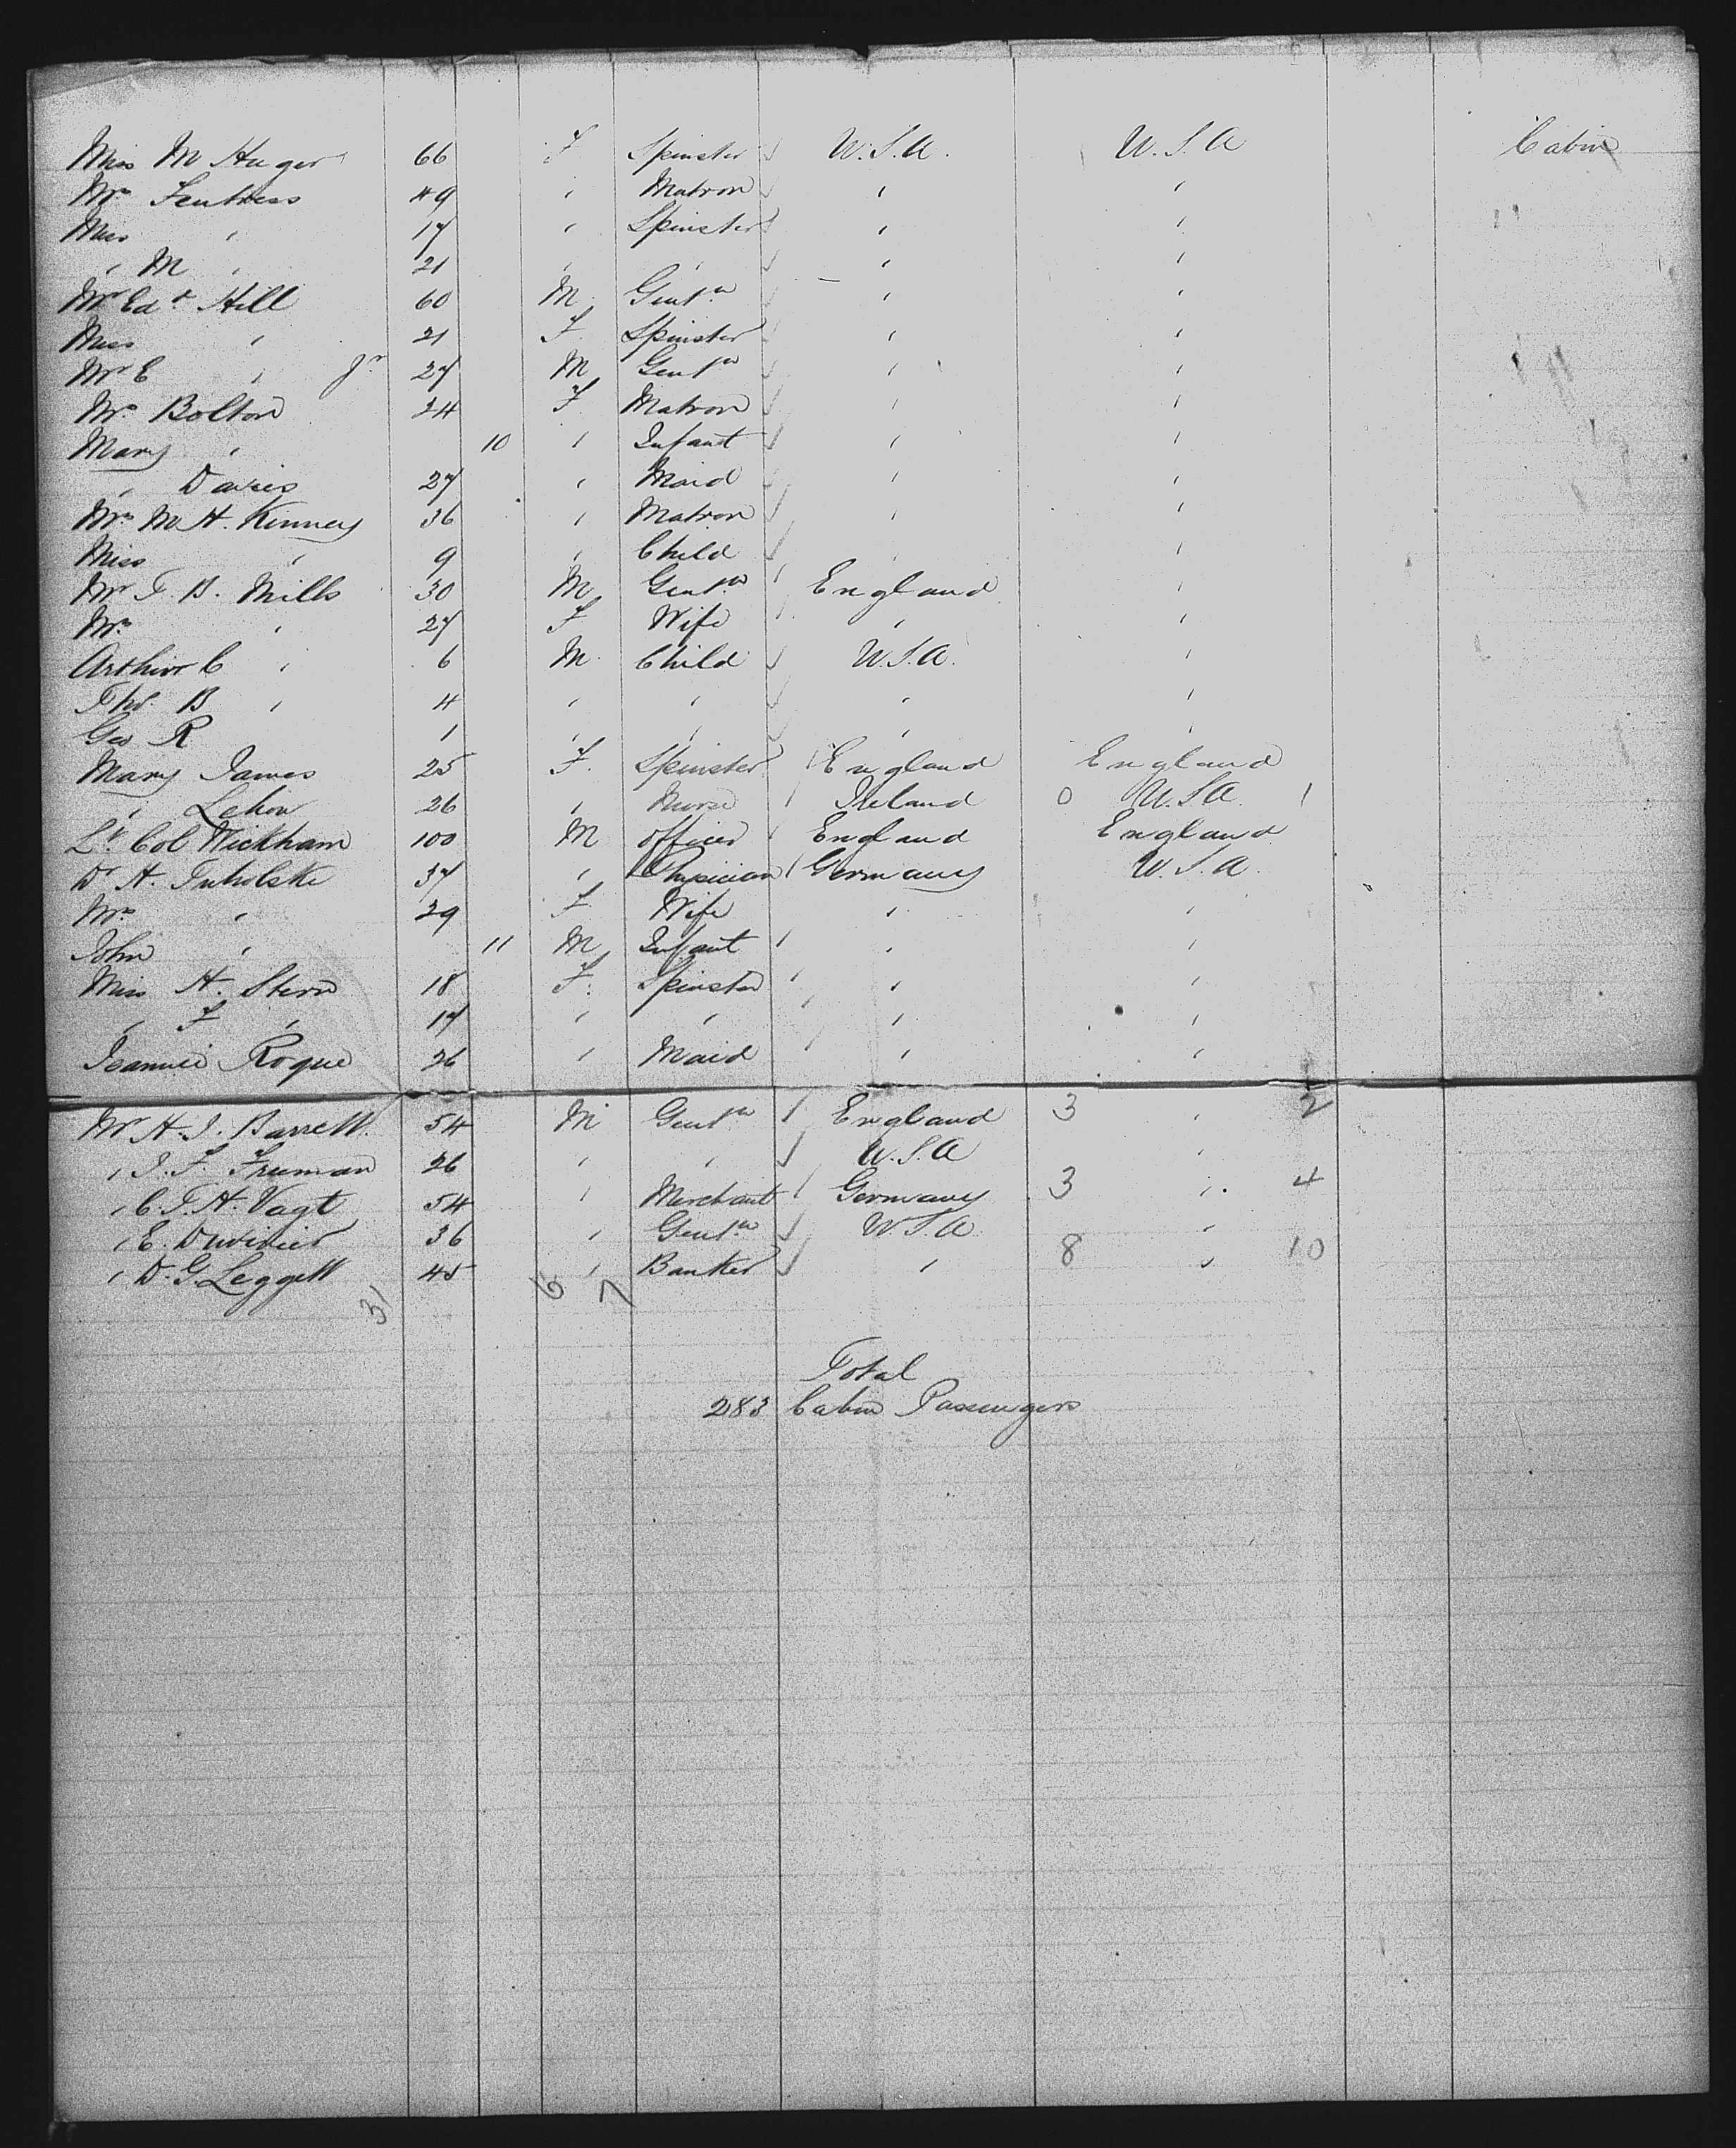 Miss M Huger 66 F Spinster U.S.A. U.S.A Cabin
Mrs Fentress 49 " Matron " "
Miss " 17 " Spinster " "
" M " 21 " " " "
Mr Edd Hill 60 M Gentn " "
Miss " 21 F Spinster " "
Mr E " Jr 27 M Gentn " "
Mrs Bolton 24 F Matron " "
Mary " 10 " Infant " "
" Davies 27 " Maid " "
Mrs M H. Kinney 36 " Matron " "
Miss " 9 " Child " "
Mr T. B. Mills 30 M Gentn England "
Mrs " 27 F Wife " "
Arthur C " 6 M Child U.S.A. "
B " 4 " " " "
Geo R 1 " " " "
Mary James 25 F. Spinster England England
" Lehon 26 " Nurse Ireland 0 U.S.A. 1
Lt. Col Wickham 100 M officer England England
Dr H. Tuholske 37 " Physician Germany U.S.A.
Mrs " 29 F Wife " "
John " 11 M Infant " "
Miss H. Stern 18 F. Spinster " "
" F " 17 " " " "
Jeannie Roque 26 " Maid " "
Mr H. J. Barrett 54 M Gentn England 3 " 2
" J. F. Freeman 26 " " U.S.A "
" C. F. H. Vagt 54 " Merchant Germany 3 " 4
" E. Duvivier 36 " Gentn U.S.A "
" D. G. Leggett 45 " Banker " 8 " 10
31 6 7
Total
283 Cabin Passengers